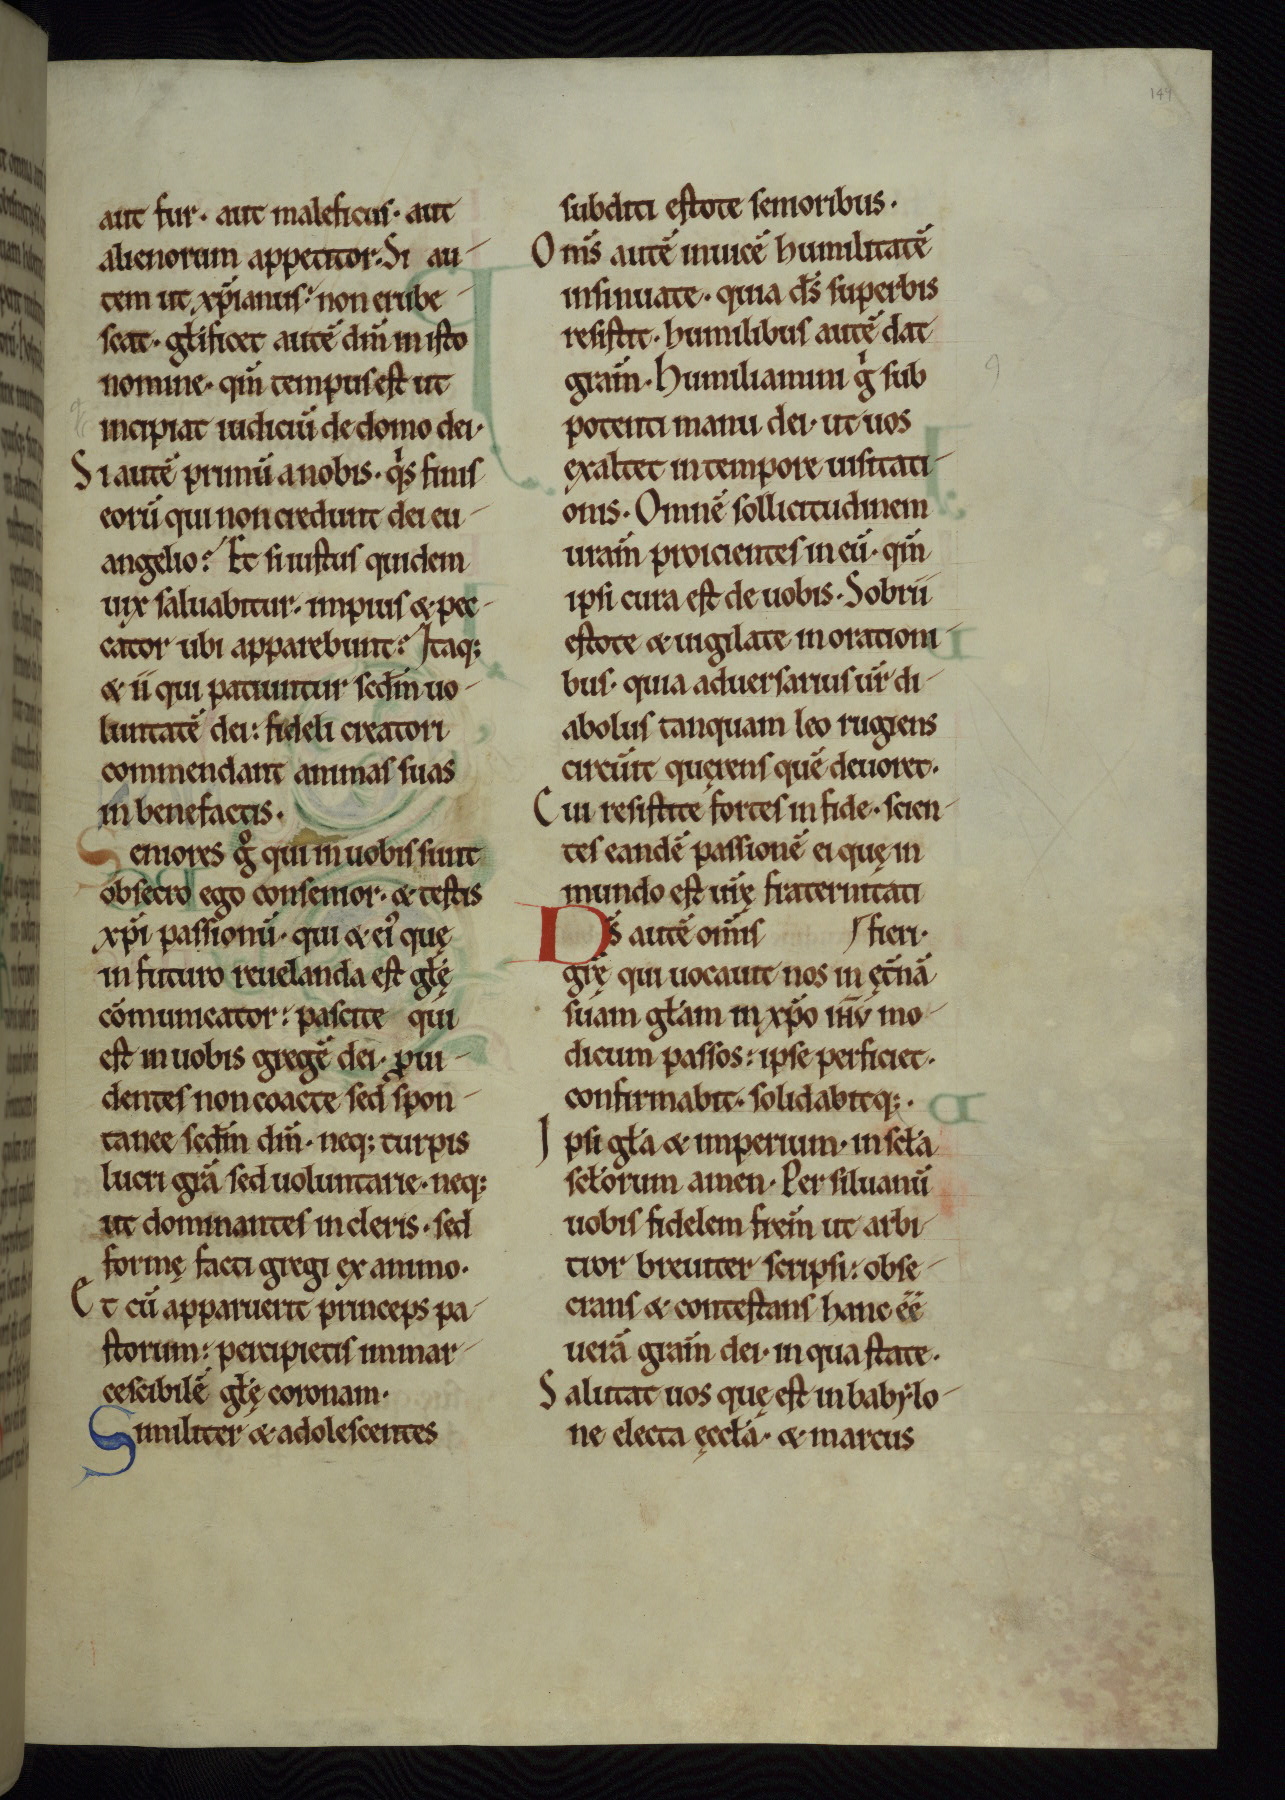 149
aut fur. aut maleficus. aut
alienorum appetitor. Si au-
tem ut xp̄ianus: non erube-
scat. gl̄ificet autē dm̄ in isto
nomine. qm̄ tempus est ut
incipiat iudiciū de domo dei.
Si autē primū a nobis. qis finis
eorū qui non credunt dei eu-
angelio? Et si iustus quidem
uix saluabitur. impius & pec-
cator ubi apparebunt? Itaq;
& ii qui patiuntur scdm̄ uo-
luntatē dei: fideli creatori
commendant animas suas
in benefactis.
Seniores go qui in uobis sunt
obsecro ego consenior. & testis
xp̄i passionū. qui & ei' quę
in futuro reuelanda est gl̄ę
cōmunicator: pascite qui
est in uobis gregē dei. ꝓui-
dentes non coacte sed spon-
tanee scdm̄ dm̄. neq; turpis
lucri grā sed uoluntarie. neq;
ut dominantes in cleris. sed
formę facti gregi ex animo.
Et cū apparuerit princeps pa-
storum: percipietis immar-
cescibilē gl̄ę coronam.
Similiter & adolescentes
subditi estote senioribus.
Om̄s autē inuicē humilitatē
insinuate. quia ds̄ superbis
resistit. humilibus autē dat
gram̄. Humiliamini gi sub
potenti manu dei. ut uos
exaltet in tempore uisitati-
onis. Omnē sollicitudinem
uram̄ proicientes in eū. qm̄
ipsi cura est de uobis. Sobrii
estote & uigilate in orationi-
bus. quia aduersarius ur̄ di-
abolus tanquam leo rugiens
circūit quęrens quē deuoret.
Cui resistite fortes in fide. scien-
tes eandē passionē ei quę in
mundo est urę̄ fraternitati
Ds̄ autē om̄is fieri.
grę̄ qui uocauit nos in ęt̄nā
suam gl̄am in xp̄o ihū mo-
dicum passos: ipse perficiet.
confirmabit. solidabitq;.
Ipsi gl̄a & imperium. in scl̄a
scl̄orum amen. Per siluanū
uobis fidelem frem̄ ut arbi-
tror breuiter scripsi: obse-
crans & contestans hanc ēē
uerā gram̄ dei. in qua state.
Salutat uos quę est in babylo-
ne electa ęccl̄a. & marcus